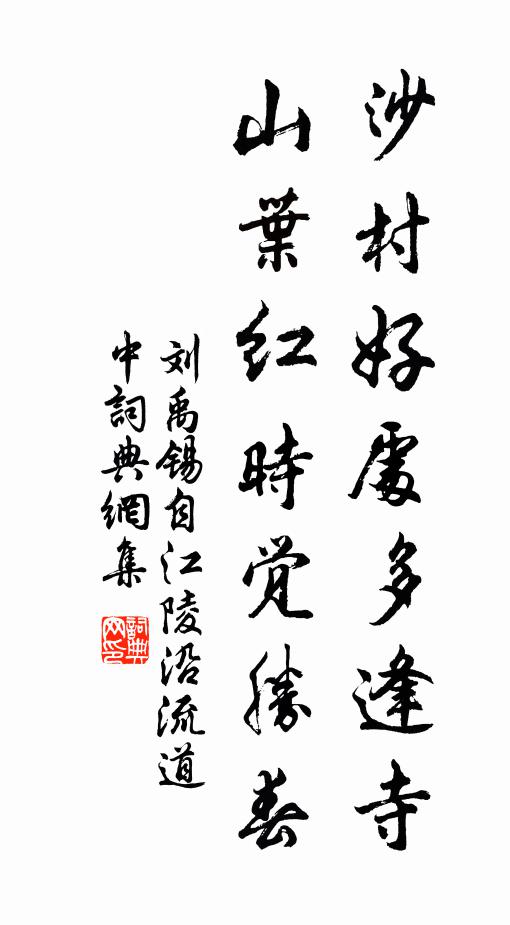 沙村好處多逢寺
山葉红時觉勝春
刘禹锡自江陵沿流道
中詞典網集
詞典
网印